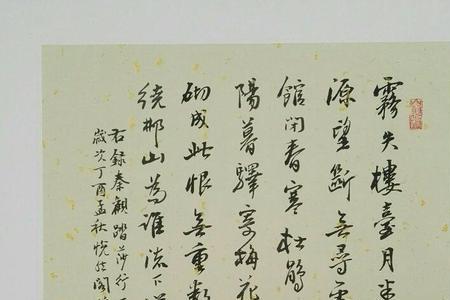 霧失樓臺月迷
源望斷無尋處
館閉春寒杜鵑
陽暮驛寄梅花
砌成此恨無重數
繞郴山為誰流下瀟
右錄秦觀踏莎行
歲次丁酉孟秋悅